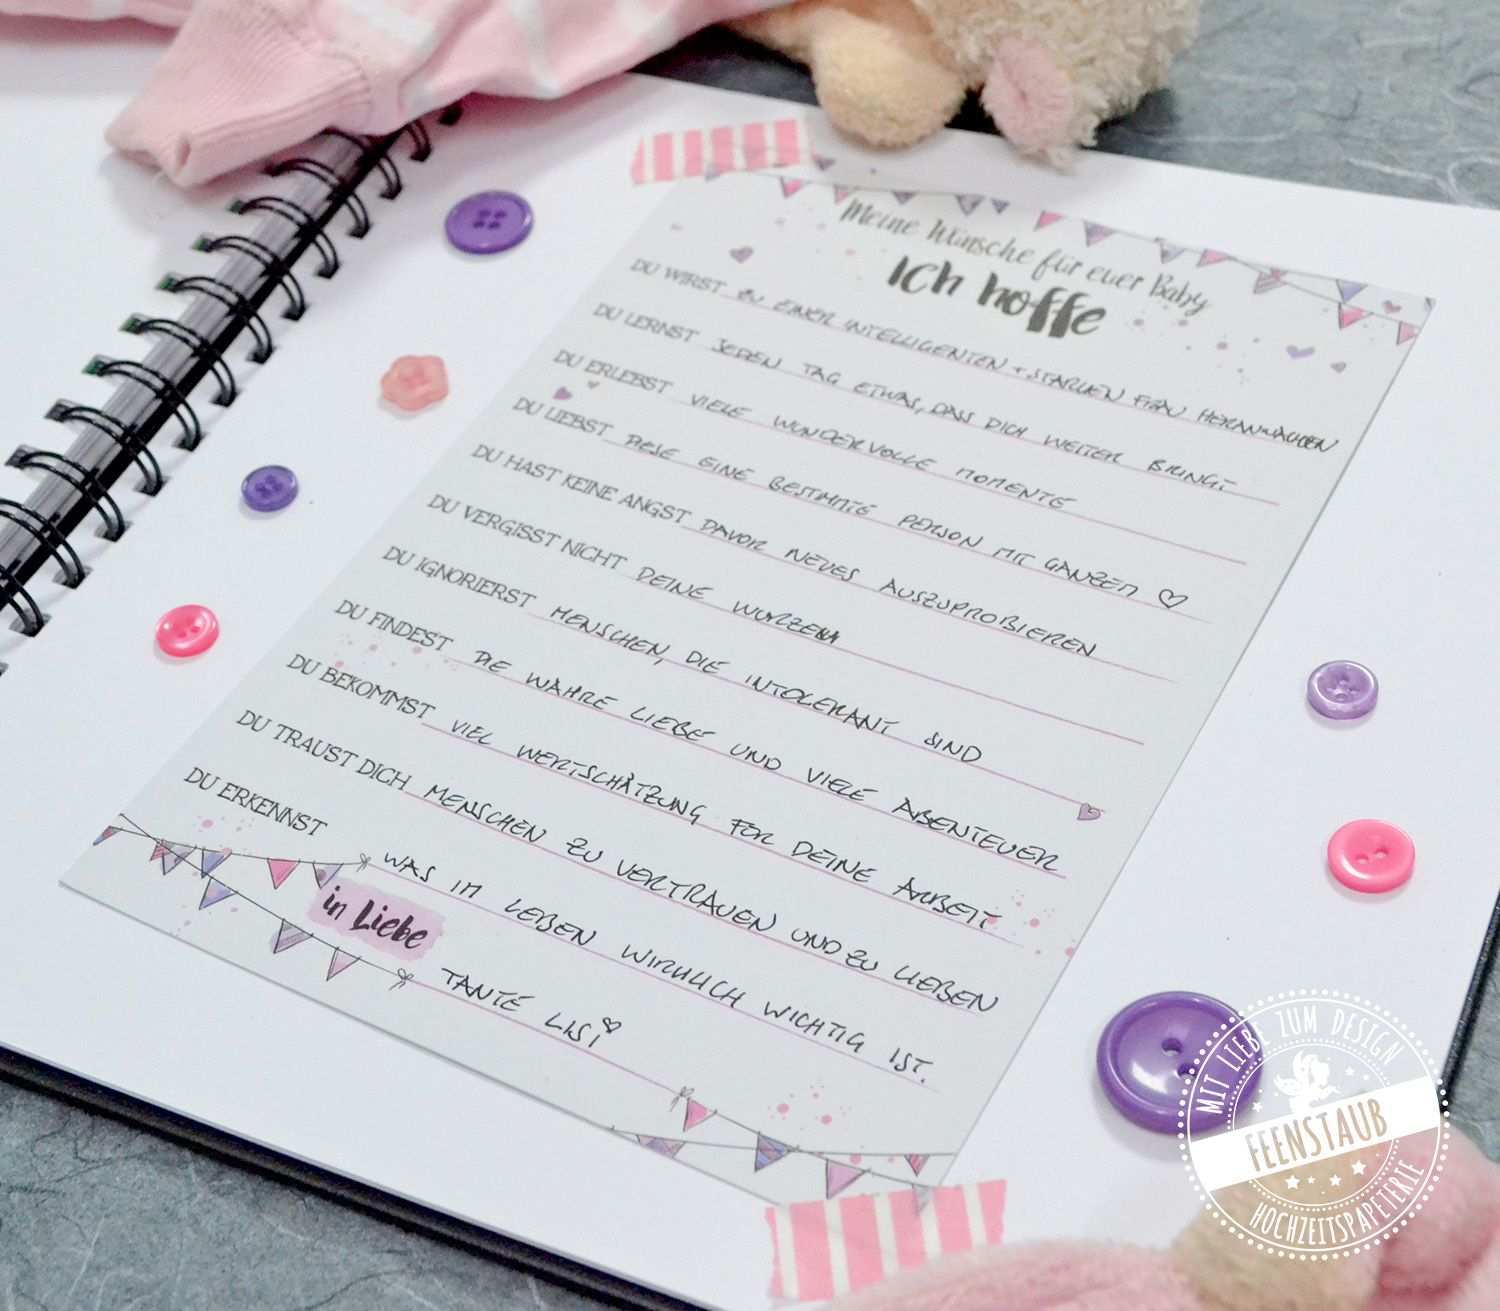 Meine Wünsche für euer Baby
Ich hoffe
DU WIRST ZU EINER INTELLIGENTEN + STARKEN FRAU HERANWACHSEN
DU LERNST JEDEN TAG ETWAS, DAS DICH WEITER BRINGT
DU ERLEBST VIELE WUNDERVOLLE MOMENTE
DU LIEBST DIESE EINE BESTIMMTE PERSON MIT GANZEM ♡
DU HAST KEINE ANGST DAVOR NEUES AUSZUPROBIEREN
DU VERGISST NICHT DEINE WURZELN
DU IGNORIERST MENSCHEN, DIE INTOLERANT SIND
DU FINDEST DIE WAHRE LIEBE UND VIELE ABENTEUER
DU BEKOMMST VIEL WERTSCHÄTZUNG FÜR DEINE ARBEIT
DU TRAUST DICH MENSCHEN ZU VERTRAUEN UND ZU LIEBEN
DU ERKENNST WAS IM LEBEN WIRKLICH WICHTIG IST.
in Liebe TANTE LISI
MIT LIEBE ZUM DESIGN
FEENSTAUB
HOCHZEITSPAPETERIE